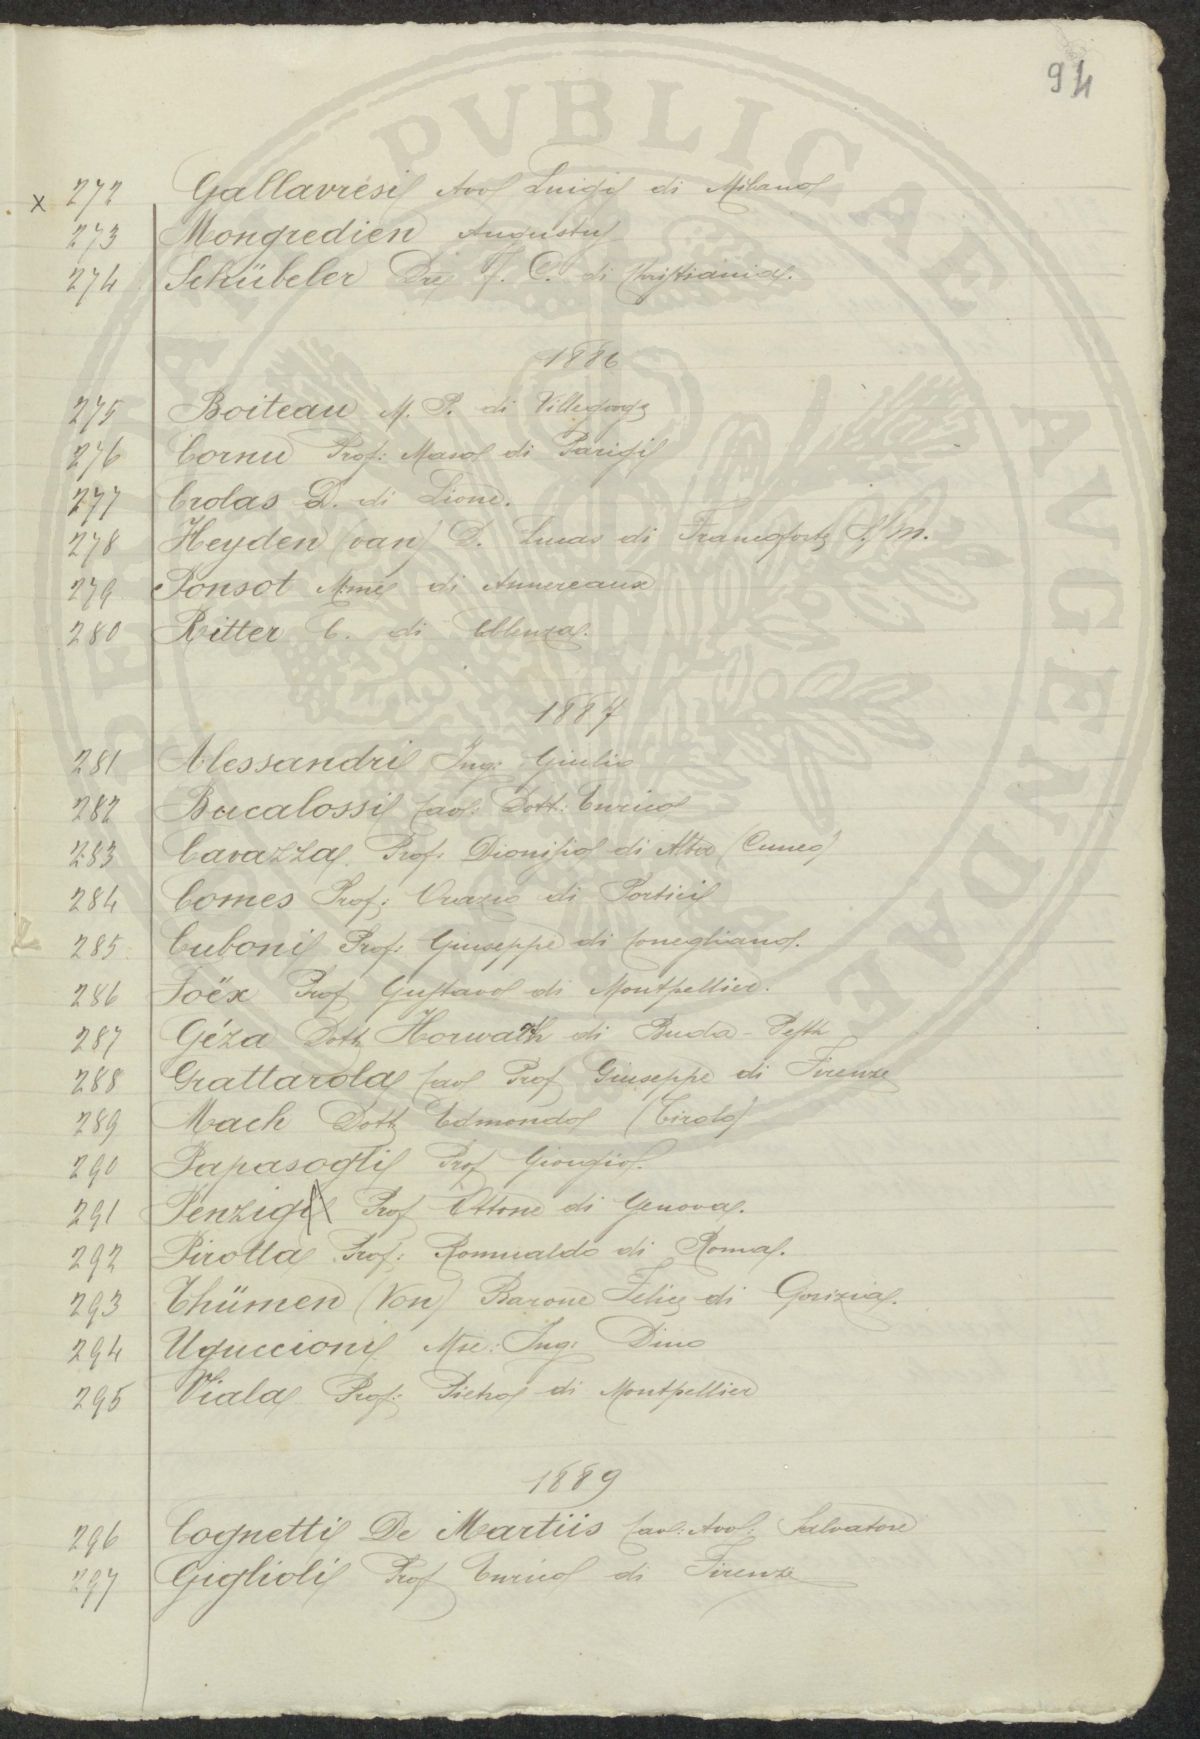 94
x 272 Gallavresi Avv Luigi di Milano
273 Mongredien Augustus
274 Schübeler Dre F. C. di Cristiania.
1886
275 Boiteau M. P. di Villegouge
276 Cornu Prof: Maxo di Parigi
277 Crolas D. di Lione.
278 Heyden (van) D. Lucas di Francoforte S/m.
279 Ponsot Mme di Annereaux
280 Ritter C. di
1887
281 Alessandri Ing: Giulio
282 Bacalossi Cav: Dott: Enrico
283 Cavazza Prof: Dionisio di Alba (Cuneo)
284 Comes Prof: Orazio di Portici
285 Cuboni Prof: Giuseppe di Conegliano.
286 Foëx Prof Gustavo di Montpellier.
287 Géza Dott Horwath di Buda-Pesth
288 Grattarola Cav Prof Giuseppe di Firenze
289 Mach Dott Edmondo (Tirolo)
290 Papasogli Prof Giorgio.
291 Penzig Prof Ottone di Genova.
292 Pirotta Prof: Romualdo di Roma.
293 Thümen (Von) Barone Felice di Gorizia.
294 Uguccioni Mse: Ing: Dino
295 Viala Prof: Pietro di Montpellier
1889
296 Cognetti De Martiis Cav: Avv: Salvatore
297 Giglioli Prof Enrico di Firenze